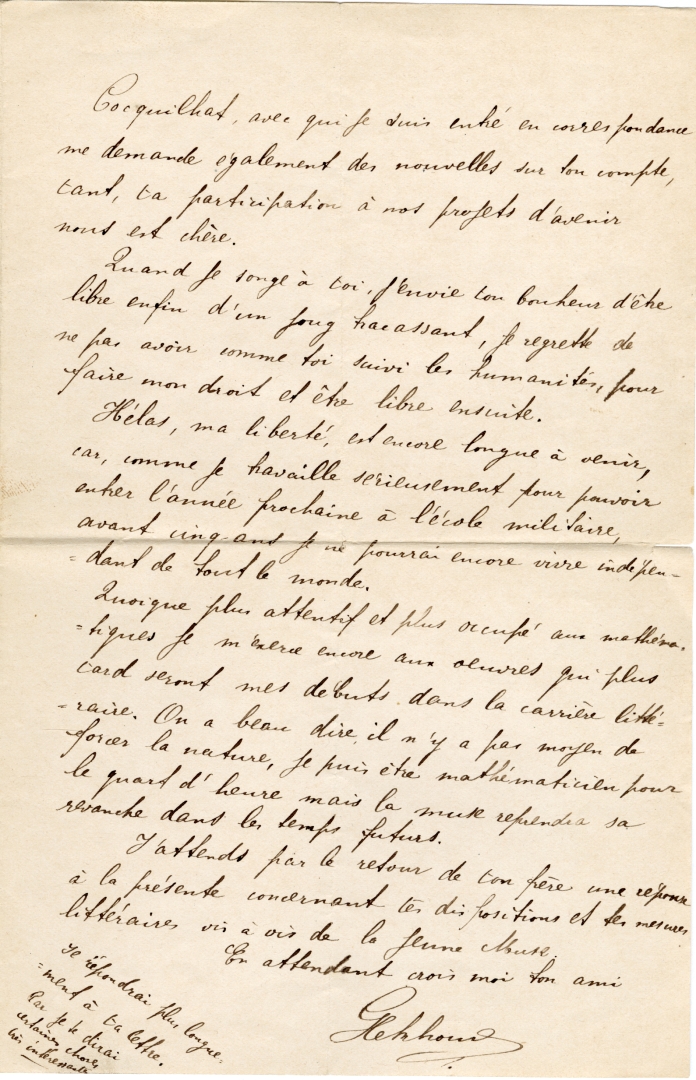 Cocquilhat, avec qui je suis entré en correspondance
me demande également des nouvelles sur ton compte,
tant, ta participation à nos projets d'avenir
nous est chère.
Quand je songe à toi, j'envie ton bonheur d'être
libre enfin d'un joug tracassant, je regrette de
ne pas avoir comme toi suivi les humanités, pour
faire mon droit et être libre ensuite.
Hélas, ma liberté, est encore longue à venir,
car, comme je travaille serieusement pour pouvoir
entrer l'année prochaine à l'école militaire,
avant cinq ans je ne pourrai encore vivre indépen-
=dant de tout le monde.
Quoique plus attentif et plus occupé aux mathéma-
=tiques je m'exerce encore aux oeuvres qui plus
tard seront mes debuts dans la carrière litté-
=raire. On a beau dire il n'y a pas moyen de
forcer la nature, je puis être mathématicien pour
le quart d'heure mais la muse reprendra sa
revanche dans les temps futurs.
J'attends par le retour de ton frère une réponse
à la présente concernant tes dispositions et tes mesures
littéraires vis à vis de la Jeune Muse.
En attendant crois moi ton ami
Je répondrai plus longue-
=ment à ta lettre.
Par je te dirai
certaines choses
très intéressantes